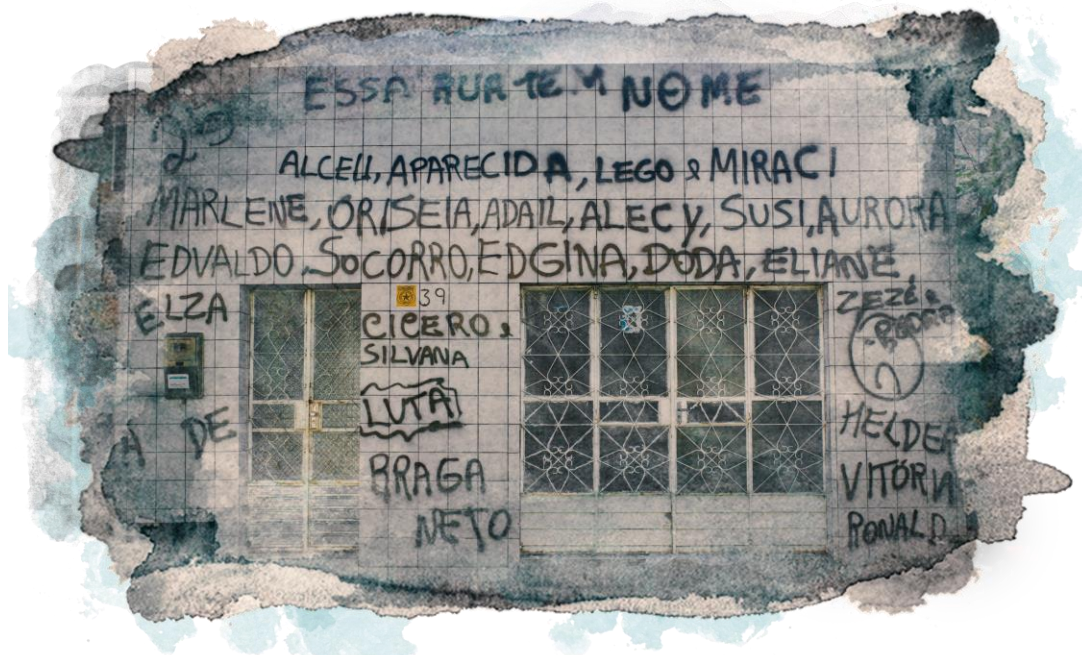 ESSA RUA TEM NOME
29
ALCEU, APARECIDA, LEGO & MIRACI
MARLENE, ORISEIA, ADAIL, ALECY, SUSI, AURORA
EDVALDO, SOCORRO, EDGINA, DODA, ELIANE,
ELZA
39
CICERO &
SILVANA
LUTA
A DE
BRAGA
NETO
ZEZÉ &
PEDRO
HELDER
VITÓRIA
RONALD